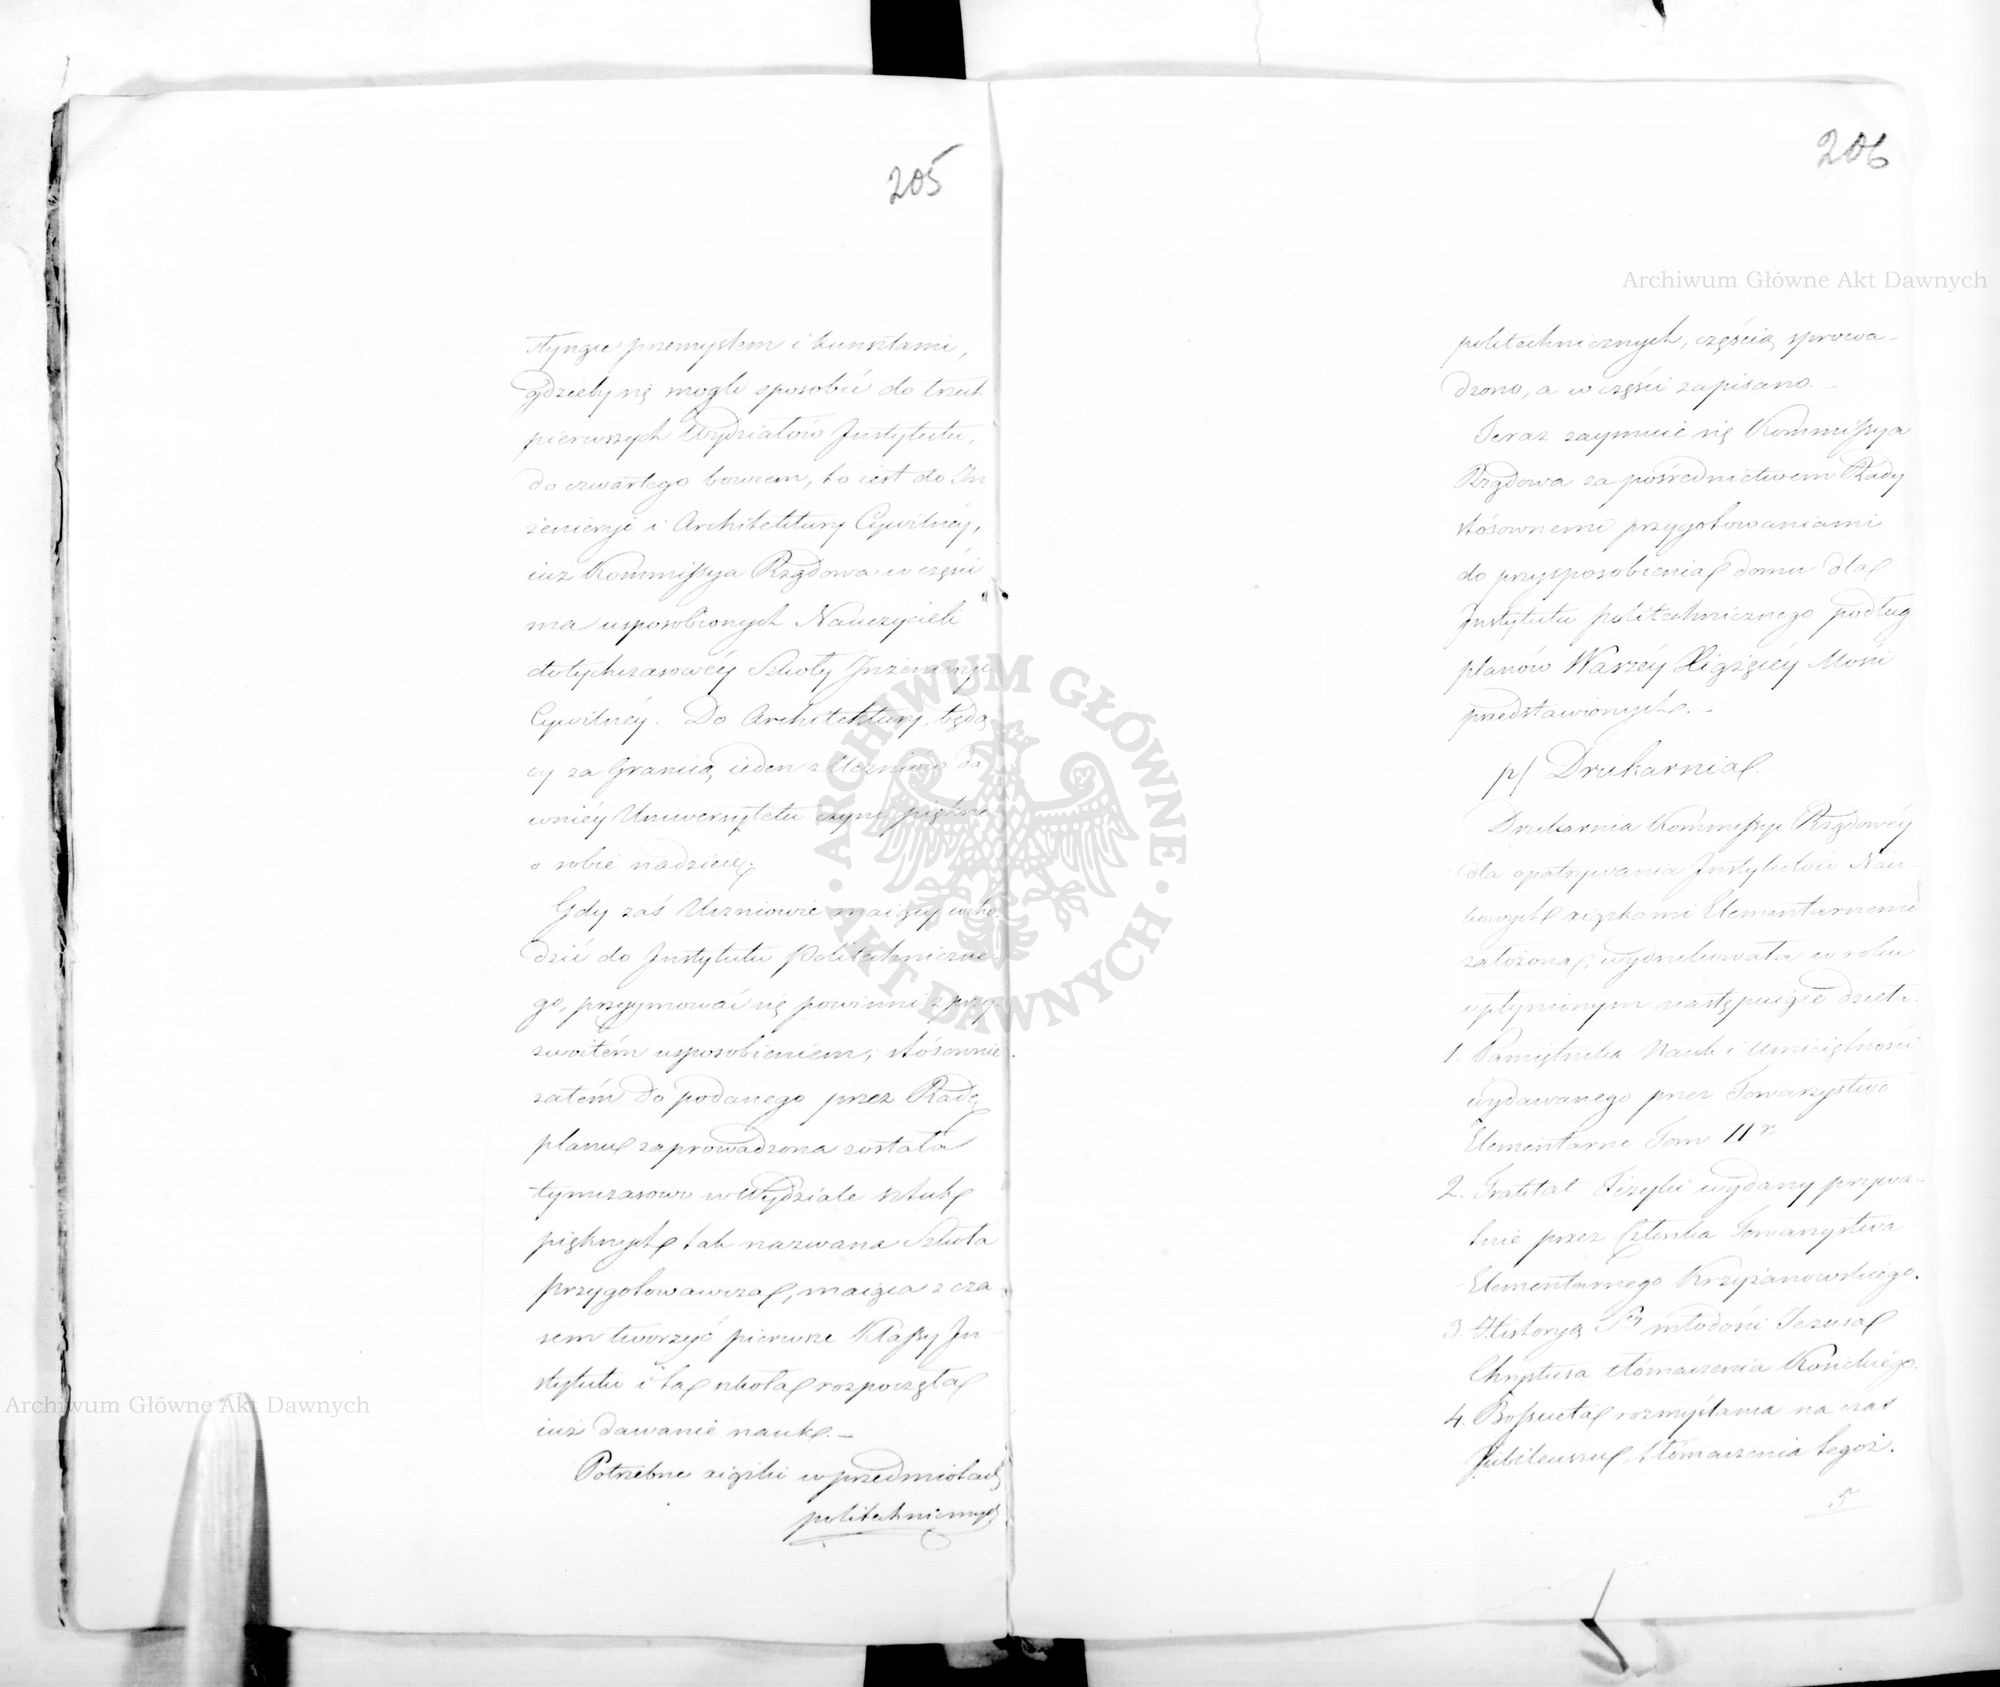 205
słynące przemysłem i kunsztami,
gdzieby się mogli sposobić do trzech
pierwszych Wydziałów Instytutu,
do czwartego bowiem, to iest do In
żenieryi i Architektury Cywilnéy,
iuż Kommissya Rządowa w części
ma usposobionych Nauczycieli
dotychczasowéy Szkoły Inżenieryi
Cywilnéy. Do Architektury, będą
cy za Granicą ieden z Uczniów da
wniéy Uniwersytetu czyni piękne
o sobie nadzieie.
Gdy zaś Uczniowie maiący wcho
dzić do Instytutu Politechniczne
go, przyymować się powinni z przy
zwoitém usposobieniem; stósownie
zatém do podanego przez Radę
planu zaprowadzona została
tymczasowo w Wydziale sztuk
pięknych tak nazwana Szkoła
przygotowawcza, maiąca z cza
sem tworzyć pierwsze Klassy In
stytutu i ta szkoła rozpoczęła
iuż dawanie nauk. –
Potrzebne xiążki w przedmiotach
politechnicznych
206
politechnicznych, częścią sprowa-
dzono, a w części zapisano. –
Teraz zaymuie się Kommissya
Rządowa za pośrednictwem Rady
stósownemi przygotowaniami
do przysposobienia domu dla
Instytutu politechnicznego podług
planów Waszéy Xiążęcéy Mości
przedstawionych. –
p/ Drukarnia.
Drukarnia Kommissyi Rządowéy
dla opatrywania Instytutów Nau-
kowych xiążkami Elementarnemi
założona, wydrukowała w roku
upłynionym następuiące dzieła.
1. Pamiętnika Nauk i Umieiętności
wydawanego przez Towarzystwo
Elementarne Tom II
2. Traktat Fizyki wydany prywa-
tnie przez Członka Towarzystwa
Elementarnego Krzyżanowskiego.
3. Historyą młodości Jezusa
Chrystusa tłómaczenia Kosickiego.
4. Bossueta rozmyślania na czas
Jubileuszu, tłómaczenia tegoż.
5
Archiwum Główne Akt Dawnych
Archiwum Główne Akt Dawnych
ARCHIWUM GŁÓWNE
AKT DAWNYCH